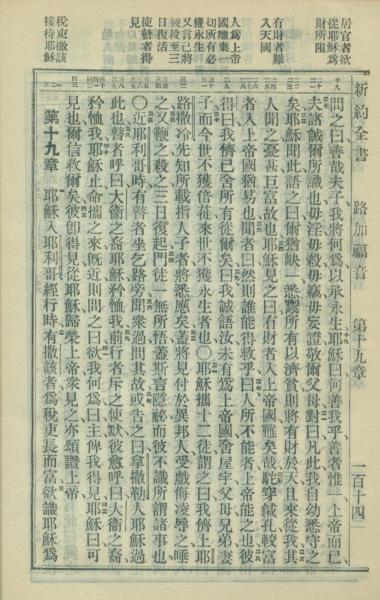 新約全書　路加福音　第十九章　一百十四
居官者欲
從耶穌爲
財所阻
有財者難
入天國
人爲上帝
國離棄一
切所有必
獲永生
又言己將
被殺至三
日復活
使瞽者得
見
稅吏撒該
接待耶穌
問之曰善哉夫子我將何爲以承永生耶穌曰何善我乎善者惟一上帝而已
夫諸誡爾所識也毋淫毋殺毋竊毋妄證敬爾父母對曰凡此我自幼悉守之
矣耶穌聞此語之曰爾猶缺一悉鬻所有以濟貧則將有財於天且來從我其
人聞之憂甚巨富故也耶穌見之曰有財者入上帝國難矣哉駝穿鍼孔較富
者入上帝國猶易也聞者曰然則誰能得救乎曰人所不能者上帝能之也彼
得曰我儕已舍所有從爾矣曰我誠語汝未有爲上帝國舍屋宇父母兄弟妻
子而今世不獲倍蓰來世不獲永生者也〇耶穌攜十二徒謂之曰我儕上耶
路撒冷先知所載指人子者將悉應矣蓋將見付於異邦人受戲侮凌辱之唾
之又鞭之殺之三日復起門徒一無所悟蓋斯言隱祕而彼不識所謂諸事也
〇近耶利哥時有瞽者坐乞路旁聞衆過問其故或告之曰拿撒勒人耶穌過
此也瞽者呼曰大衞之裔耶穌矜恤我前行者斥之使默彼愈呼曰大衞之裔
矜恤我耶穌止命攜之來旣近則問之曰欲我何爲曰主俾我得見耶穌曰可
見也爾信救爾矣彼卽得見從耶穌歸榮上帝衆見之亦頌讚上帝
第十九章　耶穌入耶利哥經行時有撒該者爲稅吏長而富欲識耶穌爲